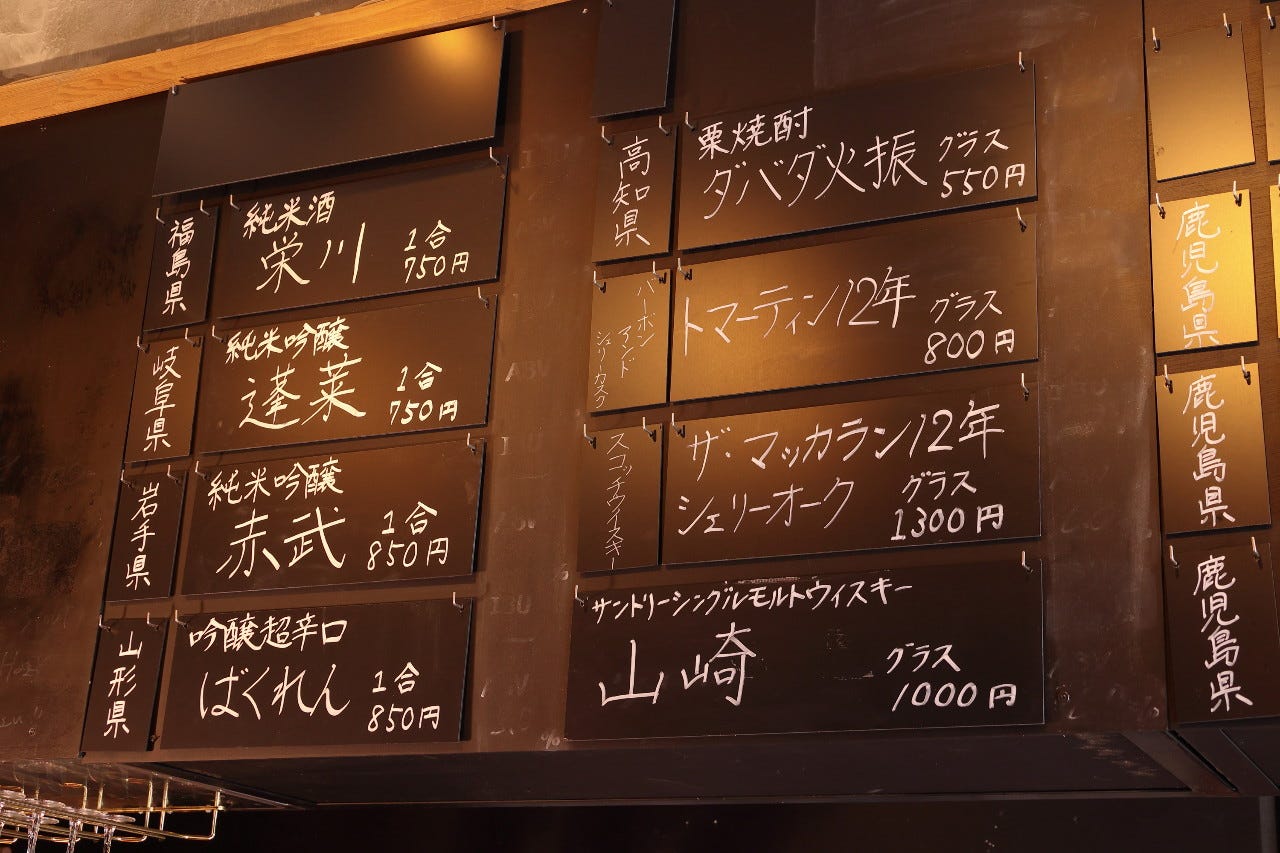 福島県
純米酒
栄川 1合
750円
岐阜県
純米吟醸
蓬莱 1合
750円
岩手県
純米吟醸
赤武 1合
850円
山形県
吟醸超辛口
ばくれん 1合
850円
高知県
栗焼酎
ダバダ火振 グラス
550円
バーボン
アンド
シェリーカスク
トマーティン12年 グラス
800円
スコッチウイスキー
ザ・マッカラン12年
シェリーオーク グラス
1300円
サントリーシングルモルトウィスキー
山崎 グラス
1000円
鹿児島県
鹿児島県
鹿児島県